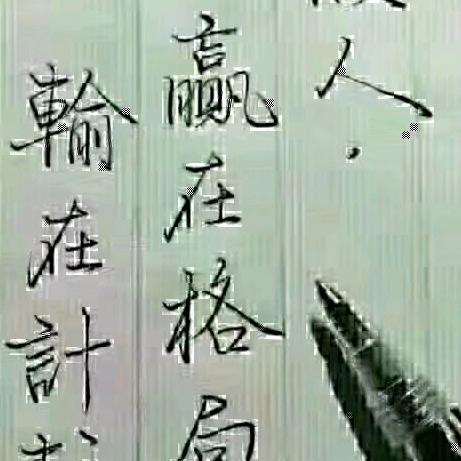 人.
贏在格局
輸在計